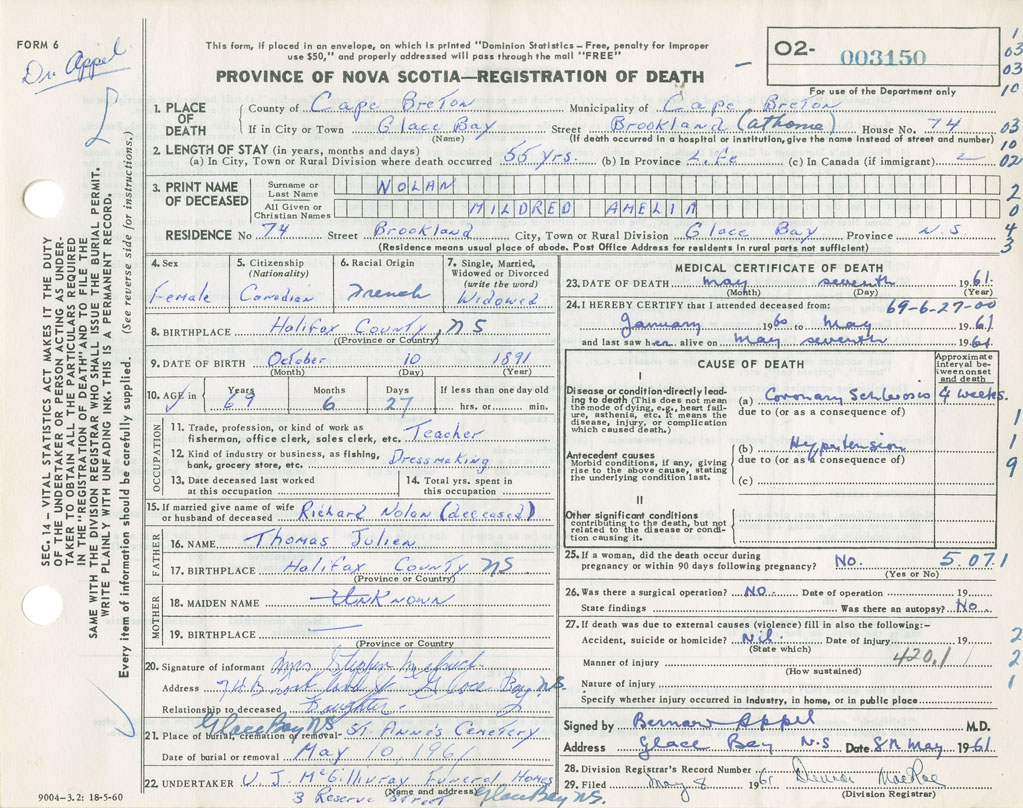 FORM 6
Dr. Appel
This form, if placed in an envelope, on which is printed "Dominion Statistics – Free, penalty for improper
use $50," and properly addressed will pass through the mail "FREE"
PROVINCE OF NOVA SCOTIA—REGISTRATION OF DEATH
02- 003150
For use of the Department only
1
03
03
10
03
10
02
2
0
4
3
1
1
9
2
2
1
SEC. 14 – VITAL STATISTICS ACT MAKES IT THE DUTY
OF THE UNDERTAKER OR PERSON ACTING AS UNDER-
TAKER TO OBTAIN ALL THE PARTICULARS REQUIRED
IN THE "REGISTRATION OF DEATH" AND TO FILE THE
SAME WITH THE DIVISION REGISTRAR WHO SHALL ISSUE THE BURIAL PERMIT.
WRITE PLAINLY WITH UNFADING INK. THIS IS A PERMANENT RECORD.
Every item of information should be carefully supplied. (See reverse side for instructions.)
1. PLACE OF DEATH
County of Cape Breton Municipality of Cape Breton
If in City or Town Glace Bay Street Brookland (at home) House No. 74
(Name) (If death occurred in a hospital or institution, give the name instead of street and number)
2. LENGTH OF STAY (in years, months and days)
(a) In City, Town or Rural Division where death occurred 55 yrs. (b) In Province Life (c) In Canada (if immigrant)
3. PRINT NAME OF DECEASED
Surname or Last Name NOLAN
All Given or Christian Names MILDRED AMELIA
RESIDENCE No 74 Street Brookland City, Town or Rural Division Glace Bay Province N.S
(Residence means usual place of abode. Post Office Address for residents in rural parts not sufficient)
4. Sex
Female
5. Citizenship (Nationality)
Canadian
6. Racial Origin
French
7. Single, Married, Widowed or Divorced (write the word)
Widowed
8. BIRTHPLACE Halifax County, NS
(Province or Country)
9. DATE OF BIRTH October 10 1891
(Month) (Day) (Year)
10. AGE in Years 69 Months 6 Days 27 If less than one day old hrs. or min.
OCCUPATION
11. Trade, profession, or kind of work as
fisherman, office clerk, sales clerk, etc. Teacher
12. Kind of industry or business, as fishing,
bank, grocery store, etc. Dressmaking
13. Date deceased last worked
at this occupation
14. Total yrs. spent in
this occupation
15. If married give name of wife
or husband of deceased Richard Nolan (deceased)
FATHER
16. NAME Thomas Julien
17. BIRTHPLACE Halifax County NS
(Province or Country)
MOTHER
18. MAIDEN NAME UNKNOWN
19. BIRTHPLACE
(Province or Country)
20. Signature of informant Mrs
Address Glace Bay, N.S.
Relationship to deceased Daughter
Glace Bay NS
21. Place of burial, cremation or removal St. Anne's Cemetery
Date of burial or removal May 10 1961
22. UNDERTAKER V. J. McGillivray Funeral Homes
(Name and address)
3 Reserve Street Glace Bay NS.
9004–3.2: 18-5-60
MEDICAL CERTIFICATE OF DEATH
23. DATE OF DEATH May seventh 1961.
(Month) (Day) (Year)
69-6-27-00
24. I HEREBY CERTIFY that I attended deceased from:
January 1960 to May 1961
and last saw her alive on May seventh 1961
CAUSE OF DEATH
Approximate
interval between onset
and death
I
Disease or condition directly lead-
ing to death (This does not mean
the mode of dying, e.g., heart fail-
ure, asthenia, etc. It means the
disease, injury, or complication
which caused death.)
(a) Coronary Sclerosis 4 weeks.
due to (or as a consequence of)
Antecedent causes
Morbid conditions, if any, giving
rise to the above cause, stating
the underlying condition last.
(b) Hypotension
due to (or as a consequence of)
(c)
II
Other significant conditions
contributing to the death, but not
related to the disease or condi-
tion causing it.
25. If a woman, did the death occur during
pregnancy or within 90 days following pregnancy? No.
(Yes or No)
5.07.1
26. Was there a surgical operation? No Date of operation 19
State findings Was there an autopsy? No.
27. If death was due to external causes (violence) fill in also the following:–
Accident, suicide or homicide? Nil Date of injury 19
(State which)
420.1
Manner of injury
(How sustained)
Nature of injury
Specify whether injury occurred in industry, in home, or in public place
Signed by Bernard Appel M.D.
Address Glace Bay N.S Date 8th May 1961
28. Division Registrar's Record Number
29. Filed May 8 1961 MacRae
(Division Registrar)